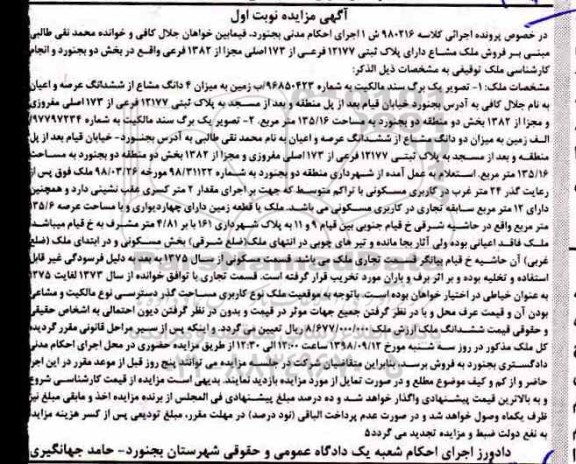 آگهی مزایده نوبت اول
در خصوص پرونده اجرائی کلاسه ۹۸۰۲۱۶ ش ۱ اجرای احکام مدنی بجنورد، فیمابین خواهان جلال کافی و خوانده محمد نقی طالبی
مبنی بر فروش ملک مشاع دارای پلاک ثبتی ۱۲۱۷۷ فرعی از ۱۷۳ اصلی مجزا از ۱۳۸۲ فرعی واقع در بخش دو بجنورد و انجام
کارشناسی ملک توقیفی به مشخصات ذیل الذکر:
مشخصات ملک: ۱- تصویر یک برگ سند مالکیت به شماره ۹۶۸۵۰۴۲۳/ب زمین به میزان ۴ دانگ مشاع از ششدانگ عرصه و اعیان
به نام جلال کافی به آدرس بجنورد خیابان قیام بعد از پل منطقه و بعد از مسجد به پلاک ثبتی ۱۲۱۷۷ فرعی از ۱۷۳ اصلی مفروزی
و مجزا از ۱۳۸۲ بخش دو منطقه دو بجنورد به مساحت ۱۳۵/۱۶ متر مربع. ۲- تصویر یک برگ سند مالکیت به شماره ۹۷۷۹۷۲۳۴/
الف زمین به میزان دو دانگ مشاع از ششدانگ عرصه و اعیان به نام محمد نقی طالبی به آدرس بجنورد- خیابان قیام بعد از پل
منطقه و بعد از مسجد به پلاک ثبتی ۱۲۱۷۷ فرعی از ۱۷۳ اصلی مفروزی و مجزا از ۱۳۸۲ بخش دو منطقه دو بجنورد به مساحت
۱۳۵/۱۶ متر مربع. استعلام به عمل آمده از شهرداری منطقه دو بجنورد به شماره ۹۸/۳۱۱۲۲ مورخه ۹۸/۰۳/۲۶ ملک فوق پس از
رعایت گذر ۲۴ متر غرب در کاربری مسکونی با تراکم متوسط که جهت بر اجرای مقدار ۲ متر کسری عقب نشینی دارد و همچنین
دارای ۱۲ متر مربع سابقه تجاری در کاربری مسکونی می باشد. ملک با قطعه زمین دارای چهاردیواری و با مساحت عرصه ۱۳۵/۶
متر مربع واقع در حاشیه شرقی خ قیام جنوبی بین قیام ۹ و ۱۱ به پلاک شهرداری ۱۶۱ با بر ۴/۸۱ متر مشرف به خ قیام میباشد.
ملک فاقد اعیانی بوده ولی آثار بجا مانده و تیر های چوبی در انتهای ملک (ضلع شرقی) بخش مسکونی و در ابتدای ملک (ضلع
غربی) آن حاشیه خ قیام بیانگر قسمت تجاری ملک می باشد. قسمت مسکونی از سال ۱۳۷۵ به بعد به دلیل فرسودگی غیر قابل
استفاده و تخلیه بوده و بر اثر برف و باران مورد تخریب قرار گرفته است. قسمت تجاری با توافق خوانده از سال ۱۳۷۳ لغایت ۱۳۷۵
به عنوان خیاطی در اختیار خواهان بوده است. باتوجه به موقعیت ملک نوع کاربری مساحت گذر دسترسی نوع مالکیت و مشاعی
بودن آن و قیمت عرف محل و با در نظر گرفتن جمیع جهات موثر در قیمت و بدون در نظر گرفتن دیون احتمالی به اشخاص حقیقی
و حقوقی قیمت ششدانگ ملک ارزش ملک ۸/۶۷۷/۰۰۰/۰۰۰ ریال تعیین می گردد. و اینکه پس از سیر مراحل قانونی مقرر گردیده
کل ملک مذکور در روز سه شنبه مورخ ۱۳۹۸/۰۹/۱۲ ساعت ۱۲:۰۰ الی ۱۲:۳۰ از طریق مزایده حضوری در محل اجرای احکام مدنی
دادگستری بجنورد به فروش برسد. بنابراین متقاضیان شرکت در جلسه مزایده می توانند پنج روز قبل از موعد مقرر در این اجرا
حاضر و از کم و کیف موضوع مطلع و در صورت تمایل از مورد مزایده بازدید نمایند. بدیهی است مزایده از قیمت کارشناسی شروع
و به بالاترین قیمت پیشنهادی واگذار خواهد شد و ده درصد مبلغ پیشنهادی فی المجلس از برنده مزایده اخذ و مابقی مبلغ نیز
ظرف یکماه وصول خواهد شد و در صورت عدم پرداخت الباقی (نود درصد) در مهلت مقرر، مبلغ تودیعی پس از کسر هزینه مزایده
به نفع دولت ضبط و مزایده تجدید می گردد۵
دادورز اجرای احکام شعبه یک دادگاه عمومی و حقوقی شهرستان بجنورد- حامد جهانگیری